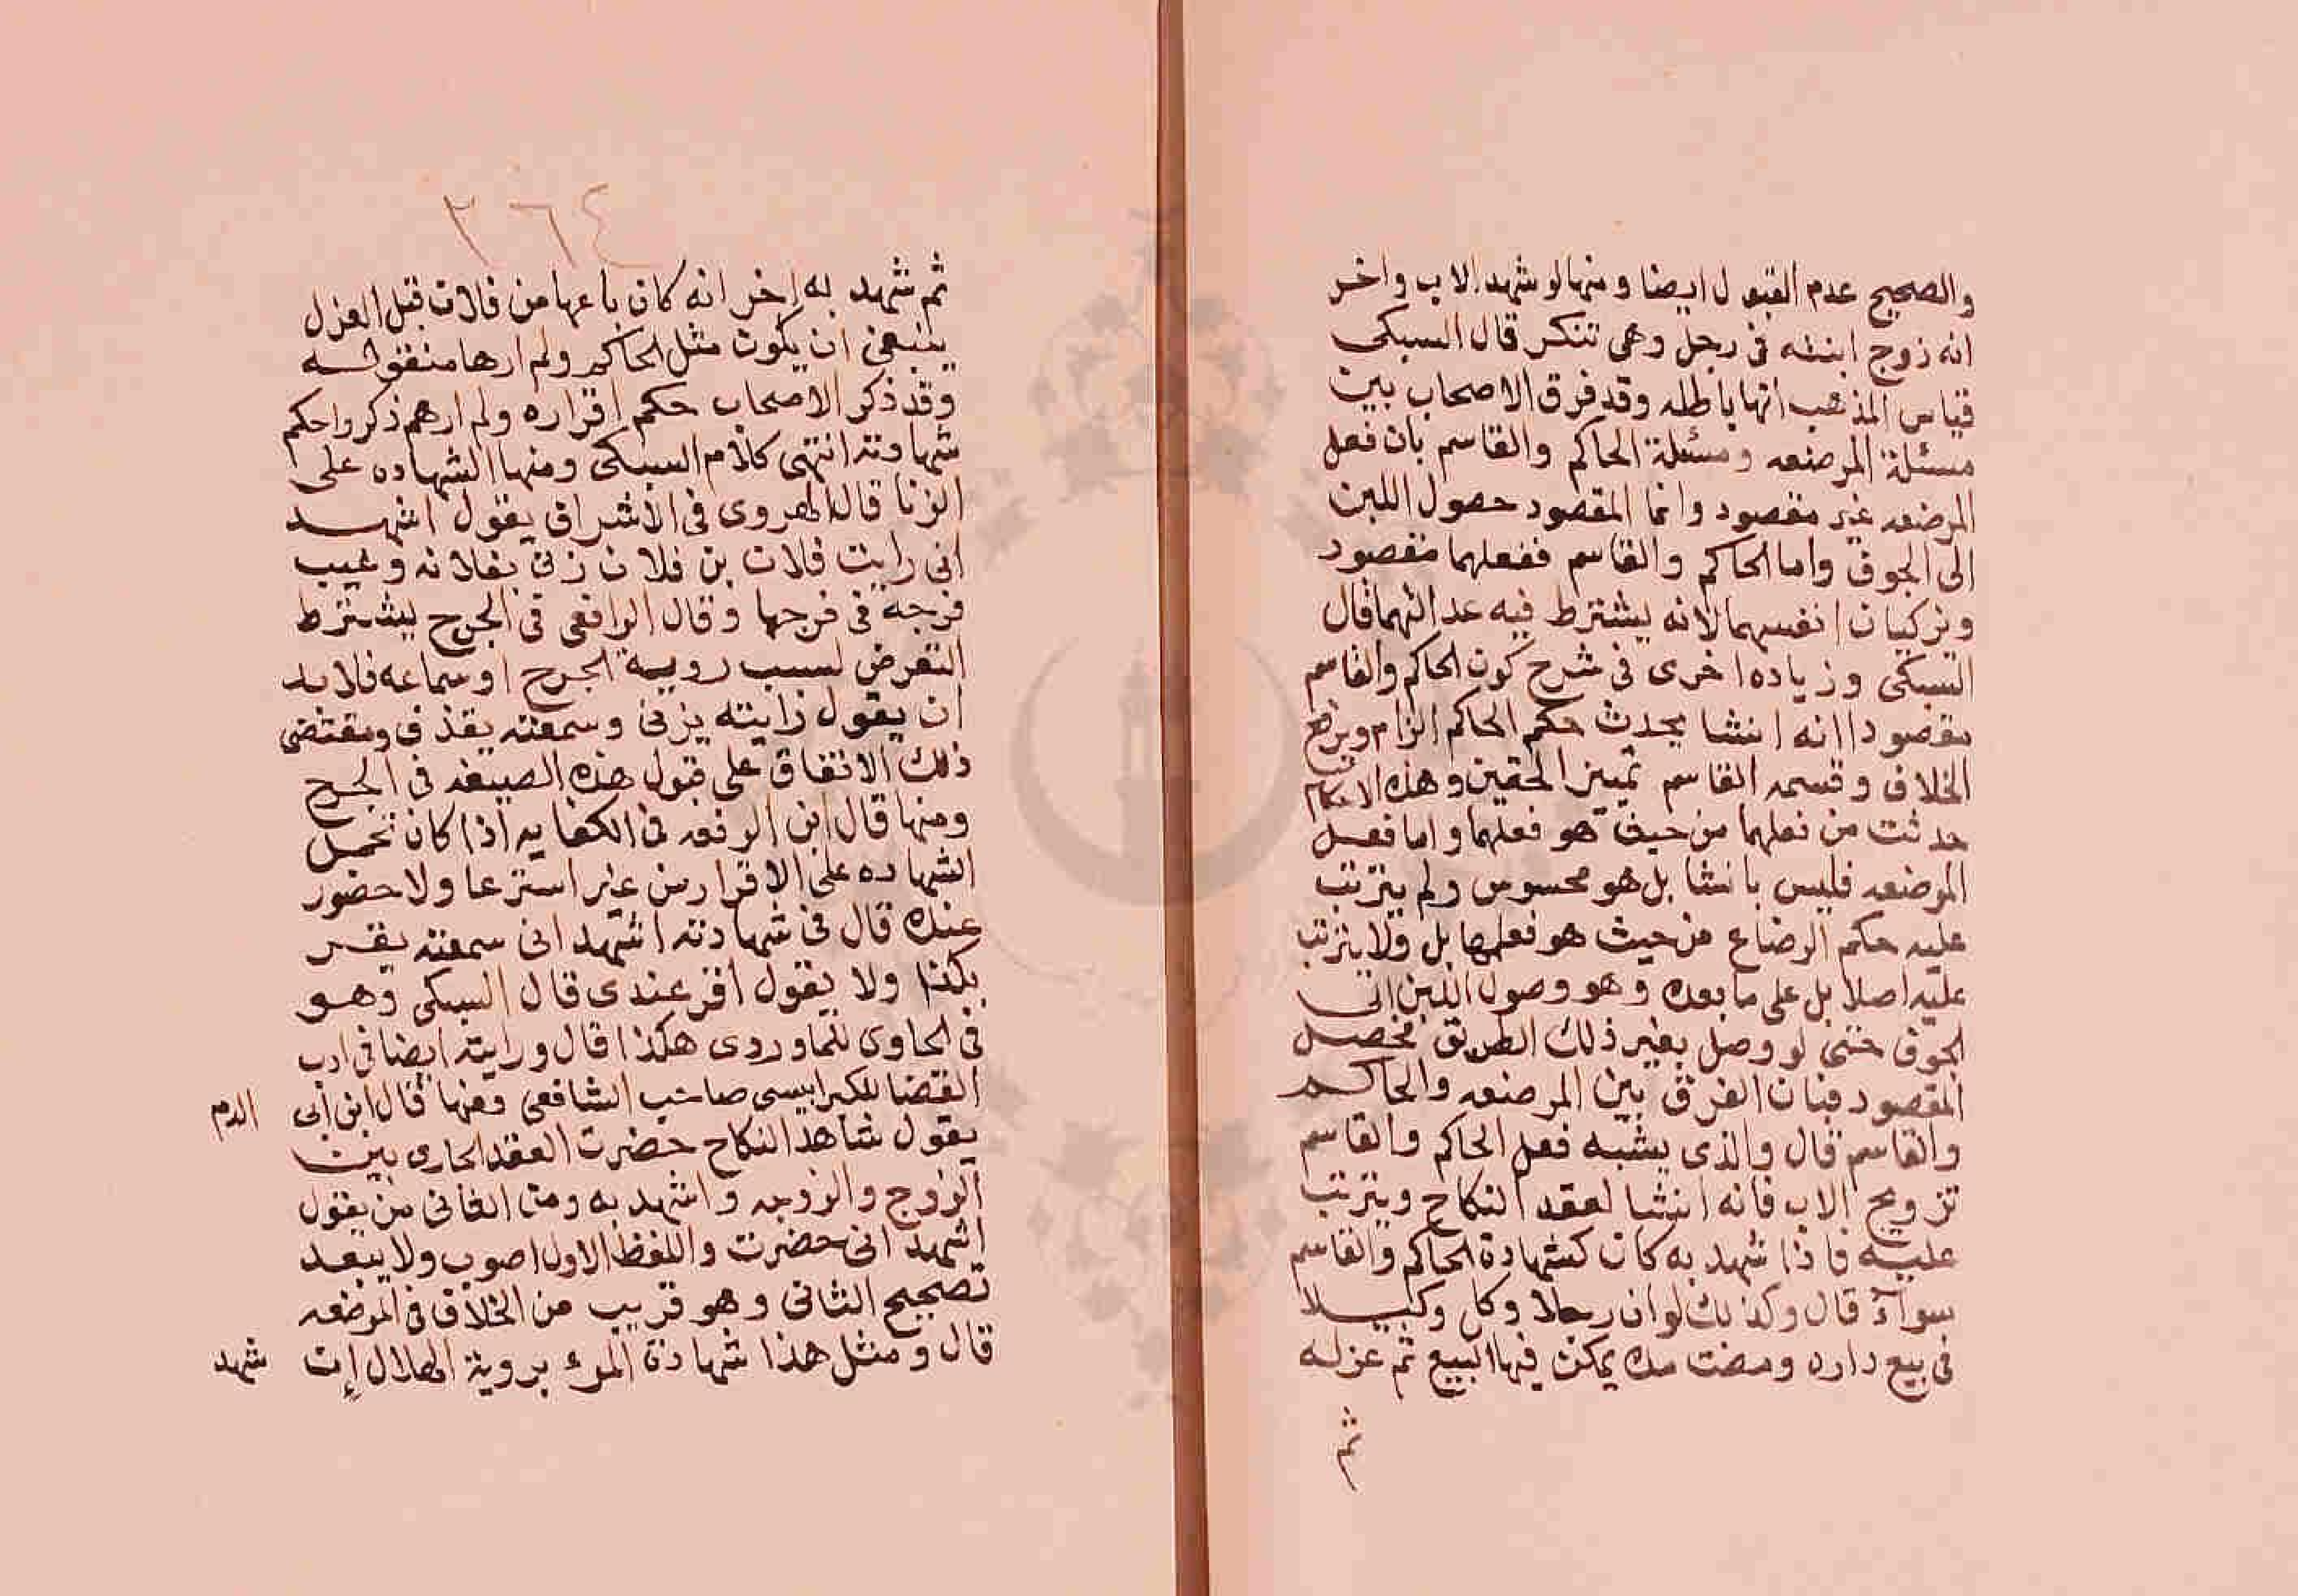 والصحيح عدم القبول ايضا ومنها لو شهد الاب واخر
انه زوج ابنته فى رجل وهى تنكر قال السبكى
قياس المذهب انها باطله وقد فرق الاصحاب بين
مسئلة المرضعه ومسئلة الحاكم والقاسم بان فعل
المرضعه غير مقصود وانما المقصود حصول اللبن
الى الجوف واما الحاكم والقاسم ففعلهما مقصود
ويزكيان انفسهما لانه يشترط فيه عدالتهما قال
السبكى وزياده اخرى فى شرح كون الحاكم والقاسم
مقصودا انه انشا يحدث حكم الحاكم الزام ويرفع
الخلاف وقسمه القاسم تميز الحقين وهذه الاحكام
حدثت من فعلهما من حيث هو فعلهما واما فعل
المرضعه فليس بانشا بل هو محسوس ولم يترتب
عليه حكم الرضاع من حيث هو فعلها بل ولا يترتب
عليه اصلا بل على ما بعده وهو وصول اللبن الى
الجوف حتى لو وصل بغير ذلك الطريق تحصل
المقصود فبان الفرق بين المرضعه والحاكم
والقاسم قال والذى يشبه فعل الحاكم والقاسم
تزويج الاب فانه انشا لعقد النكاح ويترتب
عليه فاذا شهد به كان كشهادة الحاكم والقاسم
سوآء قال وكذلك لو ان رجلا وكل وكيلا
فى بيع داره ومضت مده يمكن فيها البيع ثم عزله
ثم
٢٦٤
ثم شهد به اخر انه كان باعها من فلان قبل العزل
ينبغى ان يكون مثل الحاكم ولم ارها منقوله
وقد ذكر الاصحاب حكم اقراره ولم ارهم ذكروا حكم
شهادته انتهى كلام السبكى ومنها الشهاده على
الزنا قال الهروى فى الاشراف يقول اشهد
انى رايت فلان بن فلان زنى بفلانه وغيب
فرجه فى فرجها وقال الرافعى فى الجرح يشترط
التعرض لسبب رويه الجرح او سماعه فلا بد
ان يقول رايته يزنى وسمعته يقذف ومقتضى
ذلك الاتفاق على قبول هذه الصيغه فى الجرح
ومنها قال ابن الرفعه فى الكفايه اذا كان تحمل
الشهاده على الاقرار من غير استرعا ولا حضور
عنده قال فى شهادته اشهد انى سمعته يقر
بكذا ولا يقول اقر عندى قال السبكى وهو
فى الحاوى للماوردى هكذا قال ورايته ايضا فى ادب
القضا للكرابيسى صاحب الشافعى ومنها قال ابن ابى الدم
يقول شاهد النكاح حضرت العقد الجارى بين
الزوج والزوجه واشهد به ومن الغانى من يقول
اشهد انى حضرت واللفظ الاول اصوب ولا يبعد
تصحيح الثانى وهو قريب من الخلاف فى المرضعه
قال ومثل هذا شهادة المرء بروية الهلال إن شهد